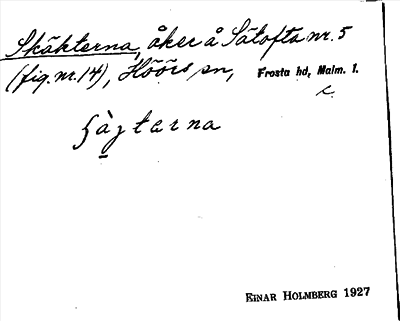 Skäkterna, åker å Sätofta nr. 5
(fig. nr. 14), Höörs sn, Frosta hd, Malm. l.
Einar Holmberg 1927